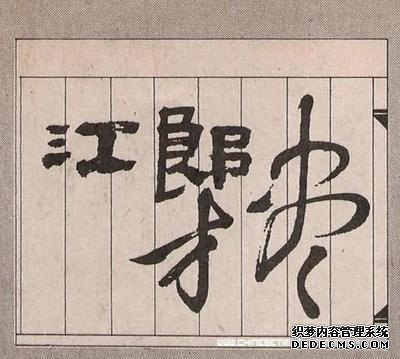 江郎才尽
织梦内容管理系统
DEDECMS.COM